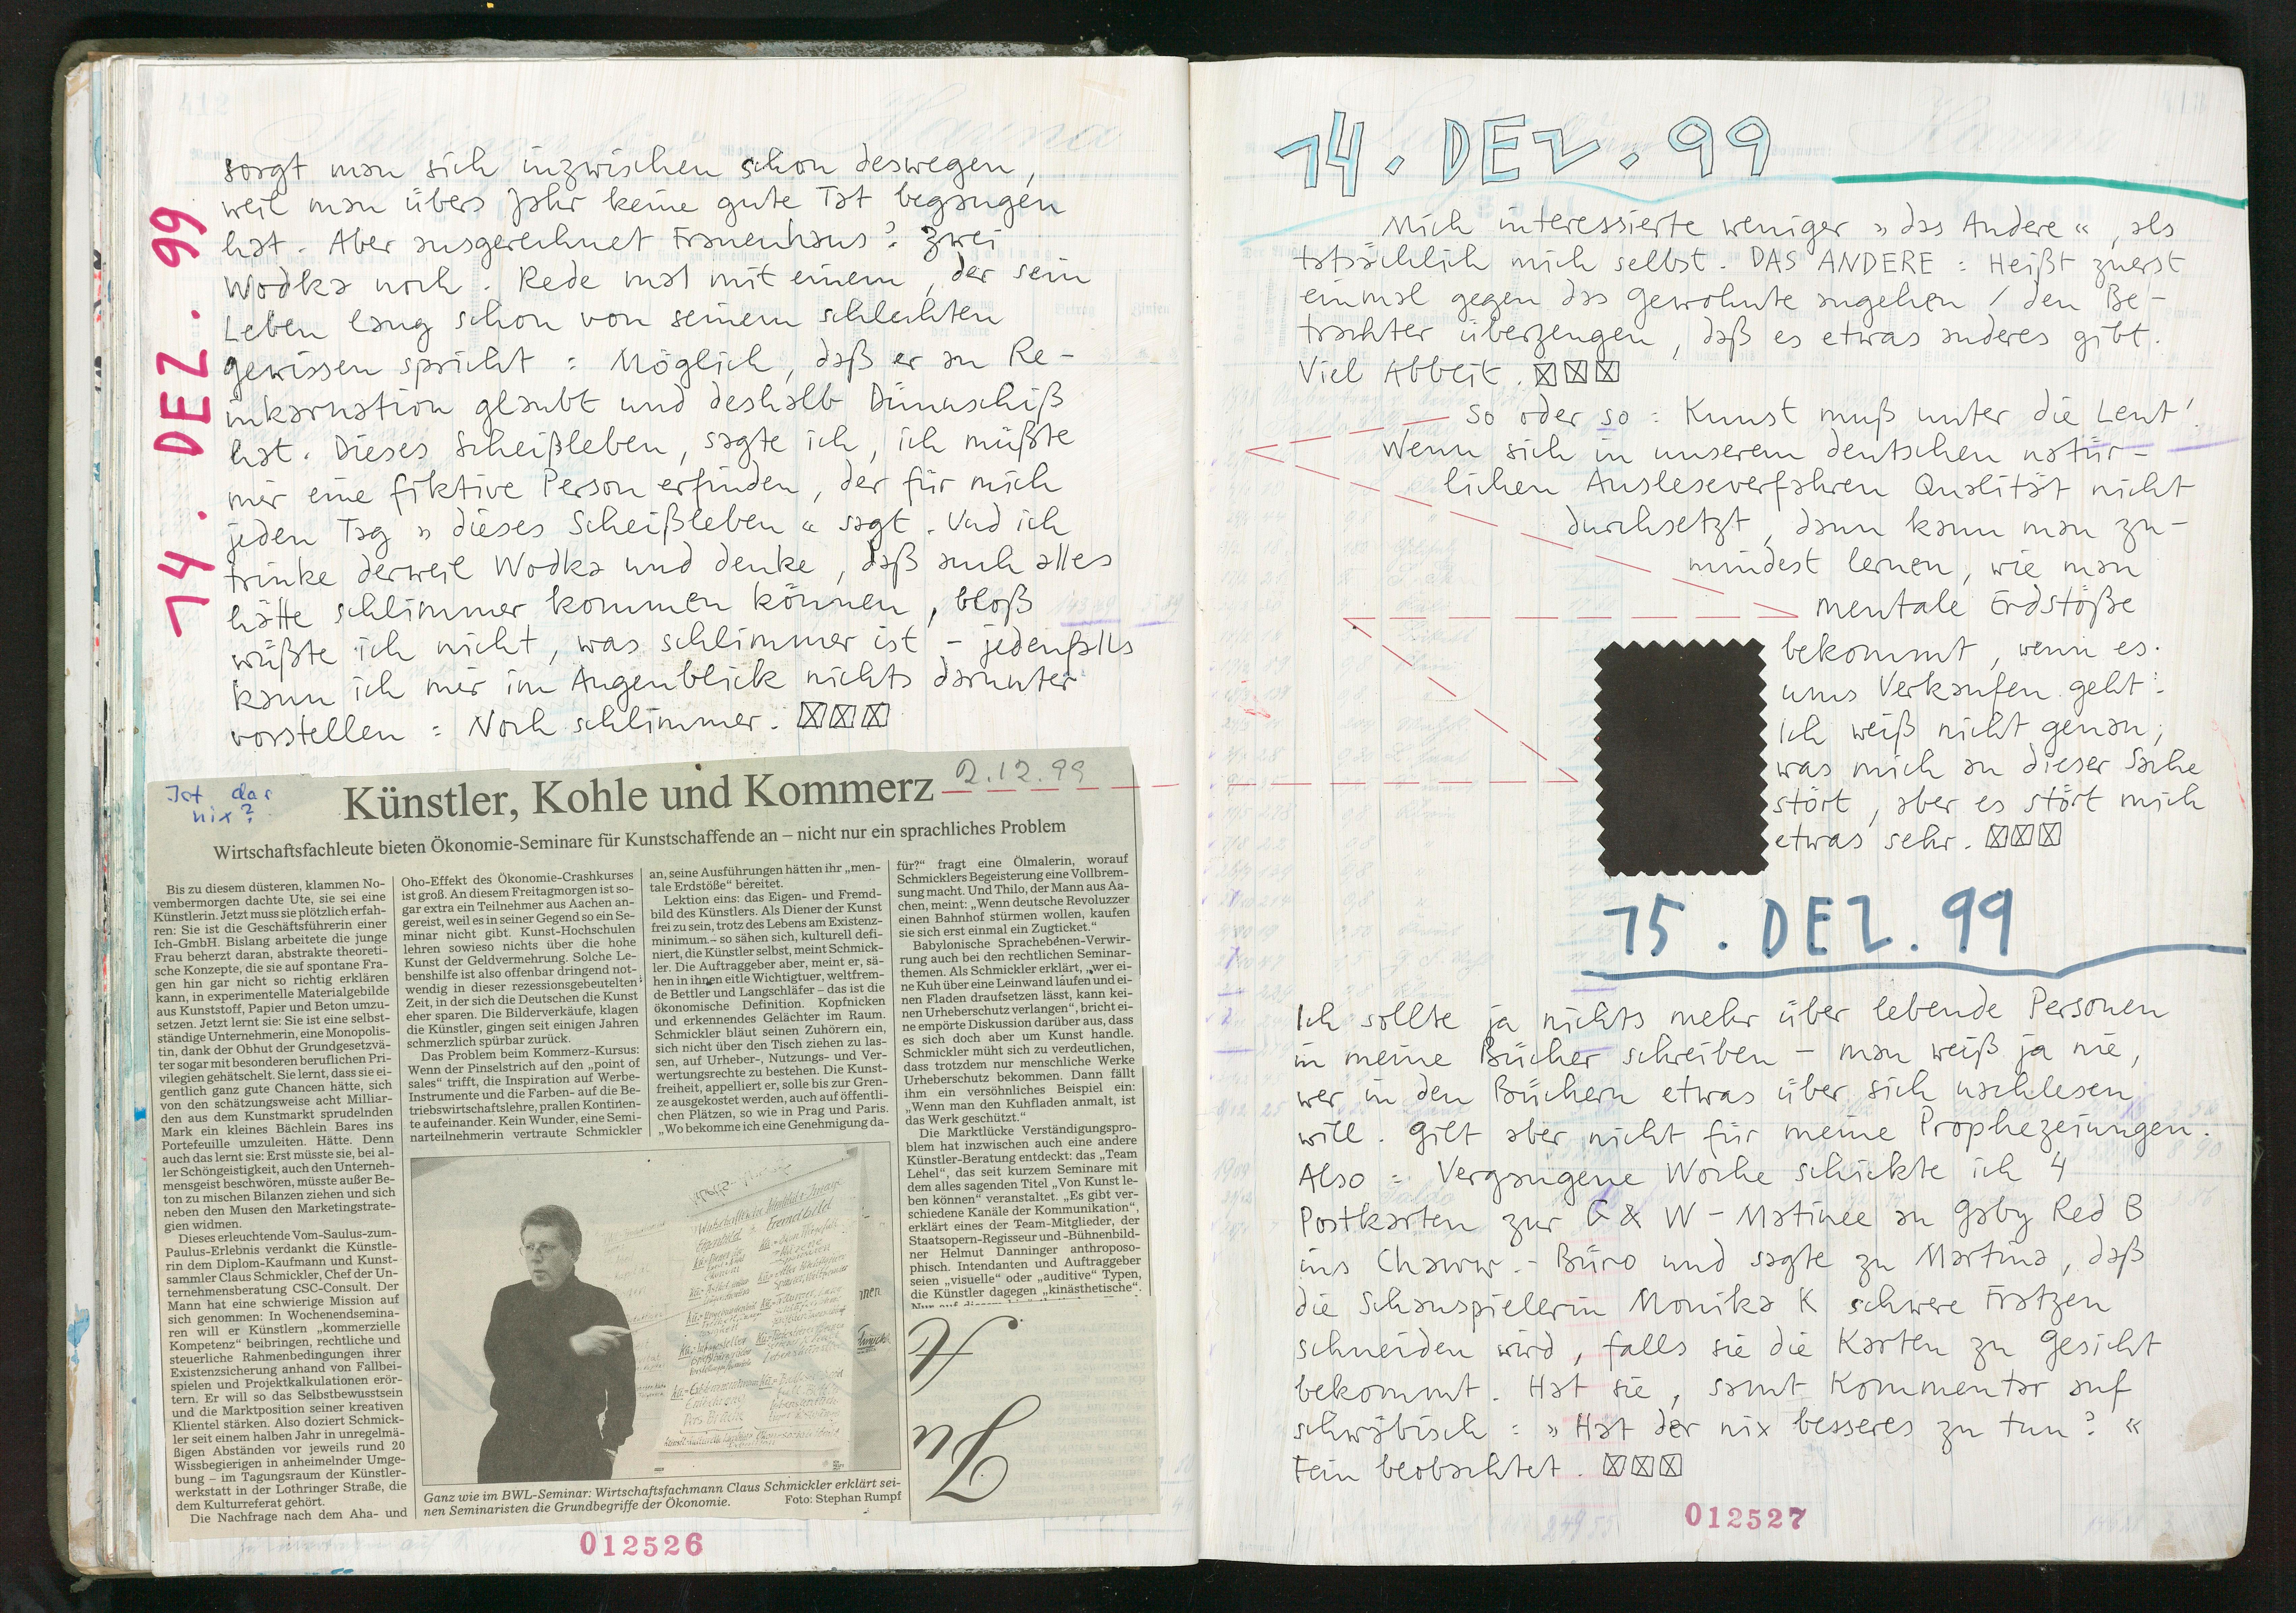 14. DEZ. 99
sorgt man sich inzwischen schon deswegen,
weil man übers Jahr keine gute Tat begangen
hat. Aber ausgerechnet Frauenhaus? Zwei
Wodka noch. Rede mal mit einem, der sein
Leben lang schon von seinem schlechten
Gewissen spricht: Möglich, daß er an Re-
inkarnation glaubt und deshalb Dünnschiß
hat. Dieses Scheißleben, sagte ich, ich müßte
mir eine fiktive Person erfinden, der für mich
jeden Tag »dieses Scheißleben« sagt. Und ich
trinke derweil Wodka und denke, daß auch alles
hätte schlimmer kommen können, bloß
wüßte ich nicht, was schlimmer ist – jedenfalls
kann ich mir im Augenblick nichts darunter
vorstellen: Noch schlimmer. ☒☒☒
Ist das
nix?
Künstler, Kohle und Kommerz
2.12.99
Wirtschaftsfachleute bieten Ökonomie-Seminare für Kunstschaffende an – nicht nur ein sprachliches Problem
Bis zu diesem düsteren, klammen No-
vembermorgen dachte Ute, sie sei eine
Künstlerin. Jetzt muss sie plötzlich erfah-
ren: Sie ist die Geschäftsführerin einer
Ich-GmbH. Bislang arbeitete die junge
Frau beherzt daran, abstrakte theoreti-
sche Konzepte, die sie auf spontane Fra-
gen hin gar nicht so richtig erklären
kann, in experimentelle Materialgebilde
aus Kunststoff, Papier und Beton umzu-
setzen. Jetzt lernt sie: Sie ist eine selbst-
ständige Unternehmerin, eine Monopolis-
tin, dank der Obhut der Grundgesetzvä-
ter sogar mit besonderen beruflichen Pri-
vilegien gehätschelt. Sie lernt, dass sie ei-
gentlich ganz gute Chancen hätte, sich
von den schätzungsweise acht Milliar-
den aus dem Kunstmarkt sprudelnden
Mark ein kleines Bächlein Bares ins
Portefeuille umzuleiten. Hätte. Denn
auch das lernt sie: Erst müsste sie, bei al-
ler Schöngeistigkeit, auch den Unterneh-
mensgeist beschwören, müsste außer Be-
ton zu mischen Bilanzen ziehen und sich
neben den Musen den Marketingstrate-
gien widmen.
Dieses erleuchtende Vom-Saulus-zum-
Paulus-Erlebnis verdankt die Künstle-
rin dem Diplom-Kaufmann und Kunst-
sammler Claus Schmickler, Chef der Un-
ternehmensberatung CSC-Consult. Der
Mann hat eine schwierige Mission auf
sich genommen: In Wochenendsemina-
ren will er Künstlern „kommerzielle
Kompetenz“ beibringen, rechtliche und
steuerliche Rahmenbedingungen ihrer
Existenzsicherung anhand von Fallbei-
spielen und Projektkalkulationen erör-
tern. Er will so das Selbstbewusstsein
und die Marktposition seiner kreativen
Klientel stärken. Also doziert Schmick-
ler seit einem halben Jahr in unregelmä-
ßigen Abständen vor jeweils rund 20
Wissbegierigen in anheimelnder Umge-
bung – im Tagungsraum der Künstler-
werkstatt in der Lothringer Straße, die
dem Kulturreferat gehört.
Die Nachfrage nach dem Aha- und
Oho-Effekt des Ökonomie-Crashkurses
ist groß. An diesem Freitagmorgen ist so-
gar extra ein Teilnehmer aus Aachen an-
gereist, weil es in seiner Gegend so ein Se-
minar nicht gibt. Kunst-Hochschulen
lehren sowieso nichts über die hohe
Kunst der Geldvermehrung. Solche Le-
benshilfe ist also offenbar dringend not-
wendig in dieser rezessionsgebeutelten
Zeit, in der sich die Deutschen die Kunst
eher sparen. Die Bilderverkäufe, klagen
die Künstler, gingen seit einigen Jahren
schmerzlich spürbar zurück.
Das Problem beim Kommerz-Kursus:
Wenn der Pinselstrich auf den „point of
sales“ trifft, die Inspiration auf Werbe-
Instrumente und die Farben- auf die Be-
triebswirtschaftslehre, prallen Kontinen-
te aufeinander. Kein Wunder, eine Semi-
narteilnehmerin vertraute Schmickler
an, seine Ausführungen hätten ihr „men-
tale Erdstöße“ bereitet.
Lektion eins: das Eigen- und Fremd-
bild des Künstlers. Als Diener der Kunst
frei zu sein, trotz des Lebens am Existenz-
minimum – so sähen sich, kulturell defi-
niert, die Künstler selbst, meint Schmick-
ler. Die Auftraggeber aber, meint er, sä-
hen in ihnen eitle Wichtigtuer, weltfrem-
de Bettler und Langschläfer – das ist die
ökonomische Definition. Kopfnicken
und erkennendes Gelächter im Raum.
Schmickler bläut seinen Zuhörern ein,
sich nicht über den Tisch ziehen zu las-
sen, auf Urheber-, Nutzungs- und Ver-
wertungsrechte zu bestehen. Die Kunst-
freiheit, appelliert er, solle bis zur Gren-
ze ausgekostet werden, auch auf öffentli-
chen Plätzen, so wie in Prag und Paris.
„Wo bekomme ich eine Genehmigung da-
für?“ fragt eine Ölmalerin, worauf
Schmicklers Begeisterung eine Vollbrem-
sung macht. Und Thilo, der Mann aus Aa-
chen, meint: „Wenn deutsche Revoluzzer
einen Bahnhof stürmen wollen, kaufen
sie sich erst einmal ein Zugticket.“
Babylonische Sprachebenen-Verwir-
rung auch bei den rechtlichen Seminar-
themen. Als Schmickler erklärt, „wer ei-
ne Kuh über eine Leinwand laufen und ei-
nen Fladen draufsetzen lässt, kann kei-
nen Urheberschutz verlangen“, bricht ei-
ne empörte Diskussion darüber aus, dass
es sich doch aber um Kunst handle.
Schmickler müht sich zu verdeutlichen,
dass trotzdem nur menschliche Werke
Urheberschutz bekommen. Dann fällt
ihm ein versöhnliches Beispiel ein:
„Wenn man den Kuhfladen anmalt, ist
das Werk geschützt.“
Die Marktlücke Verständigungspro-
blem hat inzwischen auch eine andere
Künstler-Beratung entdeckt: das „Team
Lehel“, das seit kurzem Seminare mit
dem alles sagenden Titel „Von Kunst le-
ben können“ veranstaltet. „Es gibt ver-
schiedene Kanäle der Kommunikation“,
erklärt eines der Team-Mitglieder, der
Staatsopern-Regisseur und -Bühnenbild-
ner Helmut Danninger anthroposo-
phisch. Intendanten und Auftraggeber
seien „visuelle“ oder „auditive“ Typen,
die Künstler dagegen „kinästhetische“.
Eigenbild
Fremdbild
Ganz wie im BWL-Seminar: Wirtschaftsfachmann Claus Schmickler erklärt sei-
nen Seminaristen die Grundbegriffe der Ökonomie.
Foto: Stephan Rumpf
012526
14. DEZ. 99
Mich interessierte weniger »das Andere«, als
tatsächlich mich selbst. DAS ANDERE: Heißt zuerst
einmal gegen das Gewohnte angehen / den Be-
trachter überzeugen, daß es etwas anderes gibt.
Viel Abbeit. ☒☒☒
So oder so: Kunst muß unter die Leut'
Wenn sich in unserem deutschen natür-
lichen Ausleseverfahren Qualität nicht
durchsetzt, dann kann man zu-
mindest lernen, wie man
mentale Erdstöße
bekommt, wenn es
ums Verkaufen geht:
Ich weiß nicht genau,
was mich an dieser Sache
stört, aber es stört mich
etwas sehr. ☒☒☒
15. DEZ. 99
Ich sollte ja nichts mehr über lebende Personen
in meine Bücher schreiben – man weiß ja nie,
wer in den Büchern etwas über sich nachlesen
will. Gilt aber nicht für meine Prophezeiungen.
Also: Vergangene Woche schickte ich 4
Postkarten zur G & W – Matinee an Gaby Red B
ins Chaww.-Büro und sagte zu Martina, daß
die Schauspielerin Monika K schwere Fratzen
schneiden wird, falls sie die Karten zu Gesicht
bekommt. Hat sie, samt Kommentar auf
schwäbisch: »Hat der nix besseres zu tun?«
Fein beobachtet. ☒☒☒
012527